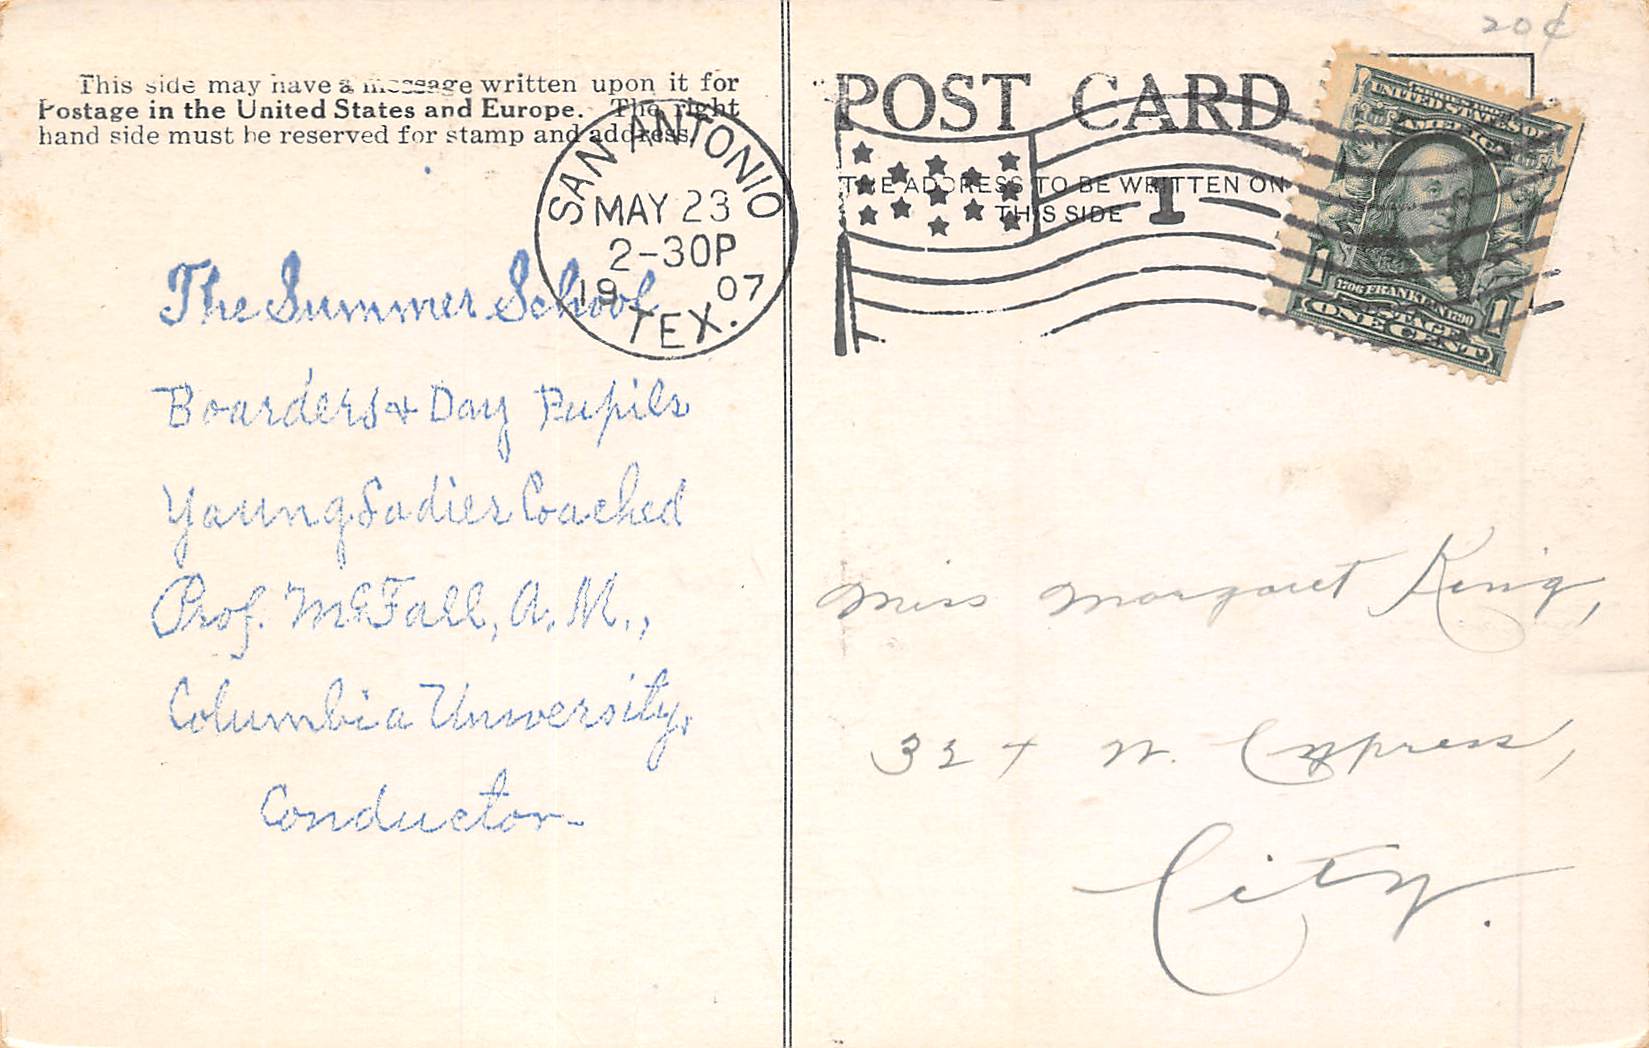 20¢
This side may have a message written upon it for
Postage in the United States and Europe. The right
hand side must be reserved for stamp and address.
POST CARD
THE ADDRESS TO BE WRITTEN ON
THIS SIDE
1
SAN ANTONIO
MAY 23
2-30P
1907
TEX.
UNITED STATES OF
AMERICA
1706 FRANKLIN 1790
POSTAGE
1 ONE CENT 1
The Summer School
Boarders & Day Pupils
Young Ladies Coached
Prof. McFall, A.M.,
Columbia University,
Conductor-
Miss Margaret King,
324 W. Cypress,
City.